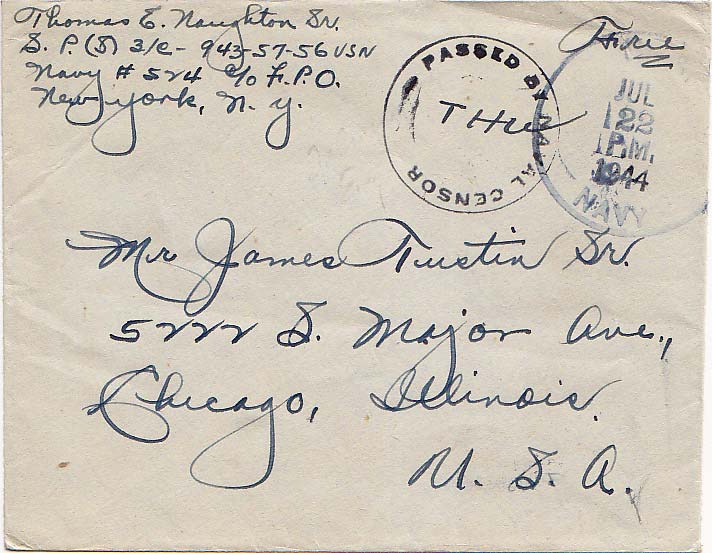 Thomas E. Naughton Sr.
S. P. (S) 3/c - 943-57-56 USN
Navy # 524 c/o F. P. O.
New York, N. Y.
Free
PASSED BY NAVAL CENSOR
JUL
22
1 P.M.
1944
NAVY
Mr James Tustin Sr.
5222 S. Major Ave.,
Chicago, Illinois.
U. S. A.